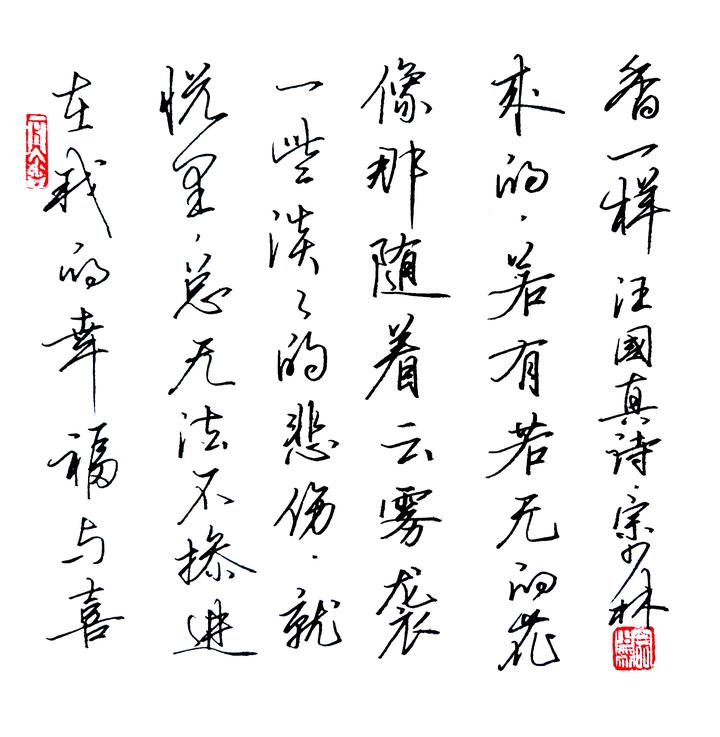 在我的幸福与喜
悦里,总无法不掺进
一些淡々的悲伤.就
像那随着云雾袭
来的.若有若无的花
香一样 汪國真诗.宗少林